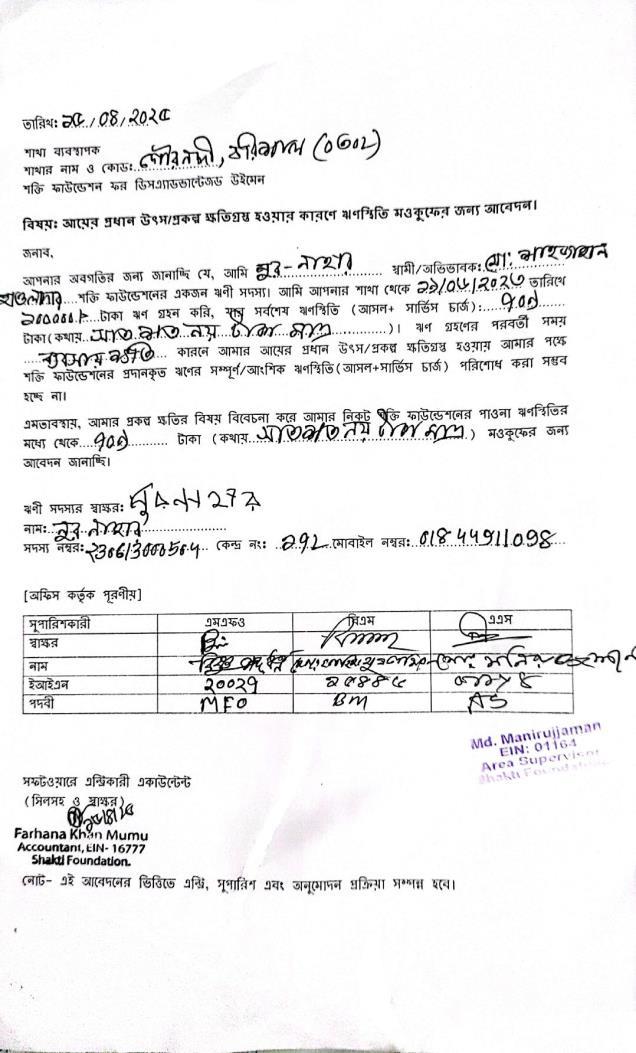 তারিখ: ২৫/০৪/২০২৫
শাখা ব্যবস্থাপক
শাখার নাম ও কোড: গৌরনদী, বরিশাল (০৩০২)
শক্তি ফাউন্ডেশন ফর ডিসএ্যাডভান্টেজড উইমেন
বিষয়: আয়ের প্রধান উৎস/প্রকল্প ক্ষতিগ্রস্ত হওয়ার কারণে ঋণস্থিতি মওকুফের জন্য আবেদন।
জনাব,
আপনার অবগতির জন্য জানাচ্ছি যে, আমি নুর-নাহার স্বামী/অভিভাবক: মো: শাহজাহান
হাওলাদার শক্তি ফাউন্ডেশনের একজন ঋণী সদস্য। আমি আপনার শাখা থেকে তারিখে
টাকা ঋণ গ্রহন করি, যার সর্বশেষ ঋণস্থিতি (আসল+ সার্ভিস চার্জ): ৭০৯
টাকা (কথায় সাত শত নয় টাকা মাত্র)। ঋণ গ্রহণের পরবর্তী সময়
ব্যবসায় ক্ষতি কারনে আমার আয়ের প্রধান উৎস/প্রকল্প ক্ষতিগ্রস্ত হওয়ায় আমার পক্ষে
শক্তি ফাউন্ডেশনের প্রদানকৃত ঋণের সম্পূর্ণ/আংশিক ঋণস্থিতি (আসল+সার্ভিস চার্জ) পরিশোধ করা সম্ভব
হচ্ছে না।
এমতাবস্থায়, আমার প্রকল্প ক্ষতির বিষয় বিবেচনা করে আমার নিকট শক্তি ফাউন্ডেশনের পাওনা ঋণস্থিতির
মধ্যে থেকে ৭০৯ টাকা (কথায় সাতশত নয় টাকা মাত্র) মওকুফের জন্য
আবেদন জানাচ্ছি।
ঋণী সদস্যর স্বাক্ষর: নুরনাহার
নাম: নুর নাহার
সদস্য নম্বর: কেন্দ্র নং: ২৭২ মোবাইল নম্বর: 01844911098
[অফিস কর্তৃক পূরণীয়]
সুপারিশকারী এমএফও বিএম এএস
স্বাক্ষর
নাম
ইআইএন 20029
পদবী MFO BM AS
Md. Manirujjaman
EIN: 01164
Area Supervisor
Shakti Foundation
সফটওয়ারে এন্ট্রিকারী একাউন্টেন্ট
(সিলসহ ও স্বাক্ষর)
Farhana Khan Mumu
Accountant, EIN- 16777
Shakti Foundation.
নোট- এই আবেদনের ভিত্তিতে এন্ট্রি, সুপারিশ এবং অনুমোদন প্রক্রিয়া সম্পন্ন হবে।